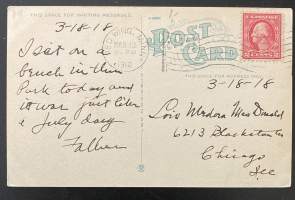 THIS SPACE FOR WRITING MESSAGES.
3-18-18
I sat on a
bench in this
Park today and
it was just like
a July day
Father
POST
CARD
THIS SPACE FOR ADDRESS ONLY.
3-18-18
Lois Medora MacDonald
6213 Blackstone Av
Chicago
Ill
1918
2 CENTS 2